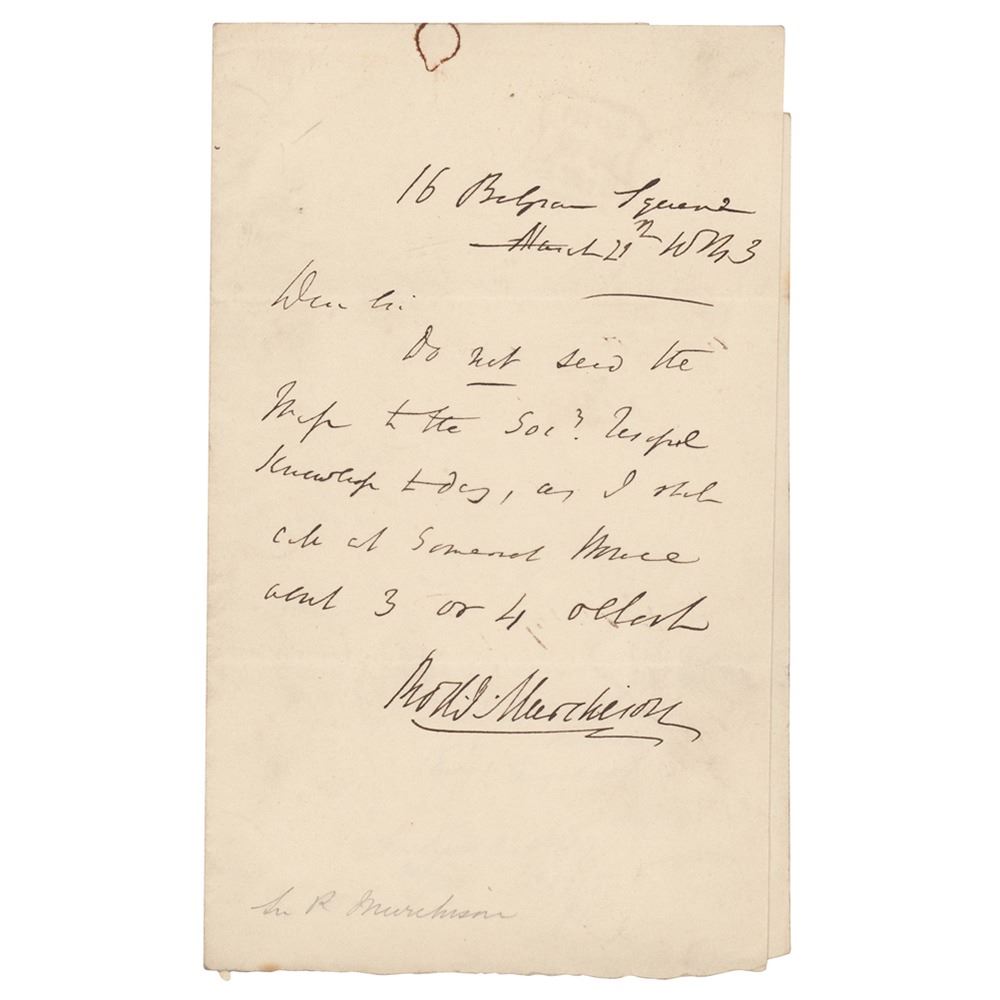 16 Belgrave Square
March 21st 1843
Dear Sir
Do not send the
Map to the Socy. Useful
Knowledge today, as I shall
call at Somerset House
about 3 or 4 oClock
Rod. I. Murchison
Sir R Murchison